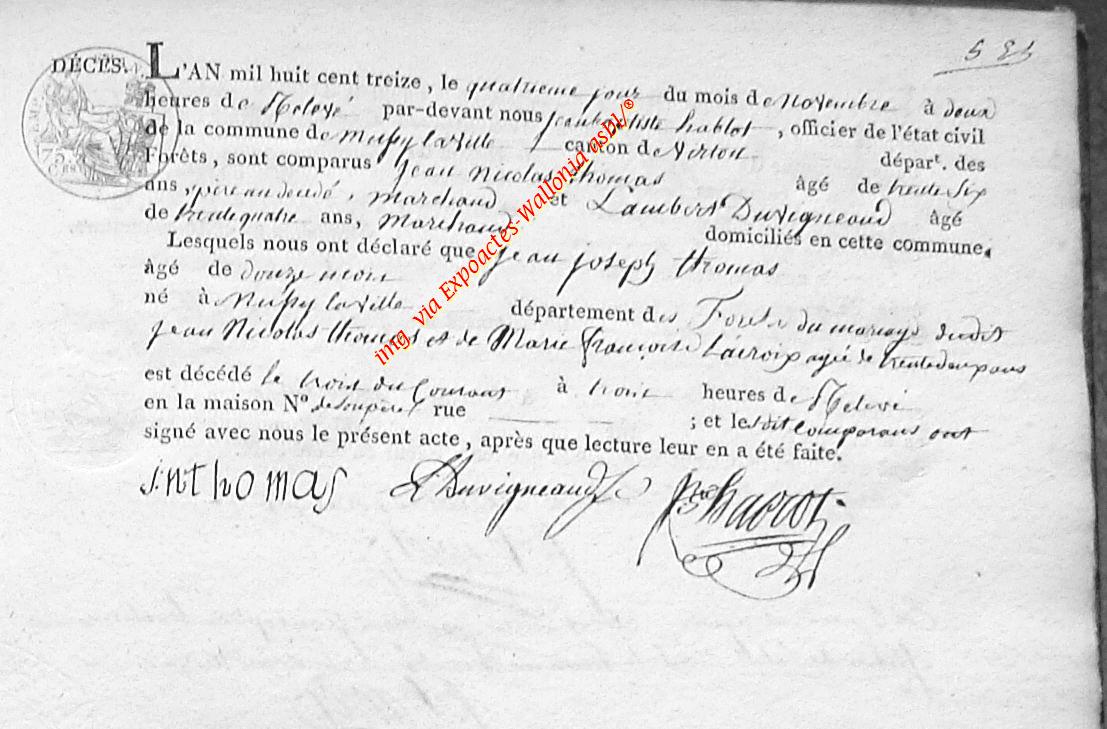 DÉCÈS.
L'AN mil huit cent treize, le quatrieme jour du mois de Novembre à deux
heures de Relevé par-devant nous Jean batiste hablot, officier de l'état civil
de la commune de Mussy la ville canton de Virton départ. des
Forêts, sont comparus Jean Nicolas Thomas âgé de trente Six
ans, pere au dendé, Marchand et Lambert Duvigneaud âgé
de trente quatre ans, Marchand domiciliés en cette commune.
Lesquels nous ont déclaré que Jean Joseph thomas
âgé de douze mois
né à Mussy la ville département des Forets du mariage dudit
Jean Nicolas thomas et de Marie françoise Lacroix agée de trente deux ans
est décédé le trois du Courant à trois heures de Relevé
en la maison Nº rue ; et lesdit Comparans ont
signé avec nous le présent acte, après que lecture leur en a été faite.
J:nthomas Duvigneaud
img. via Expoactes-Wallonia asbl/®